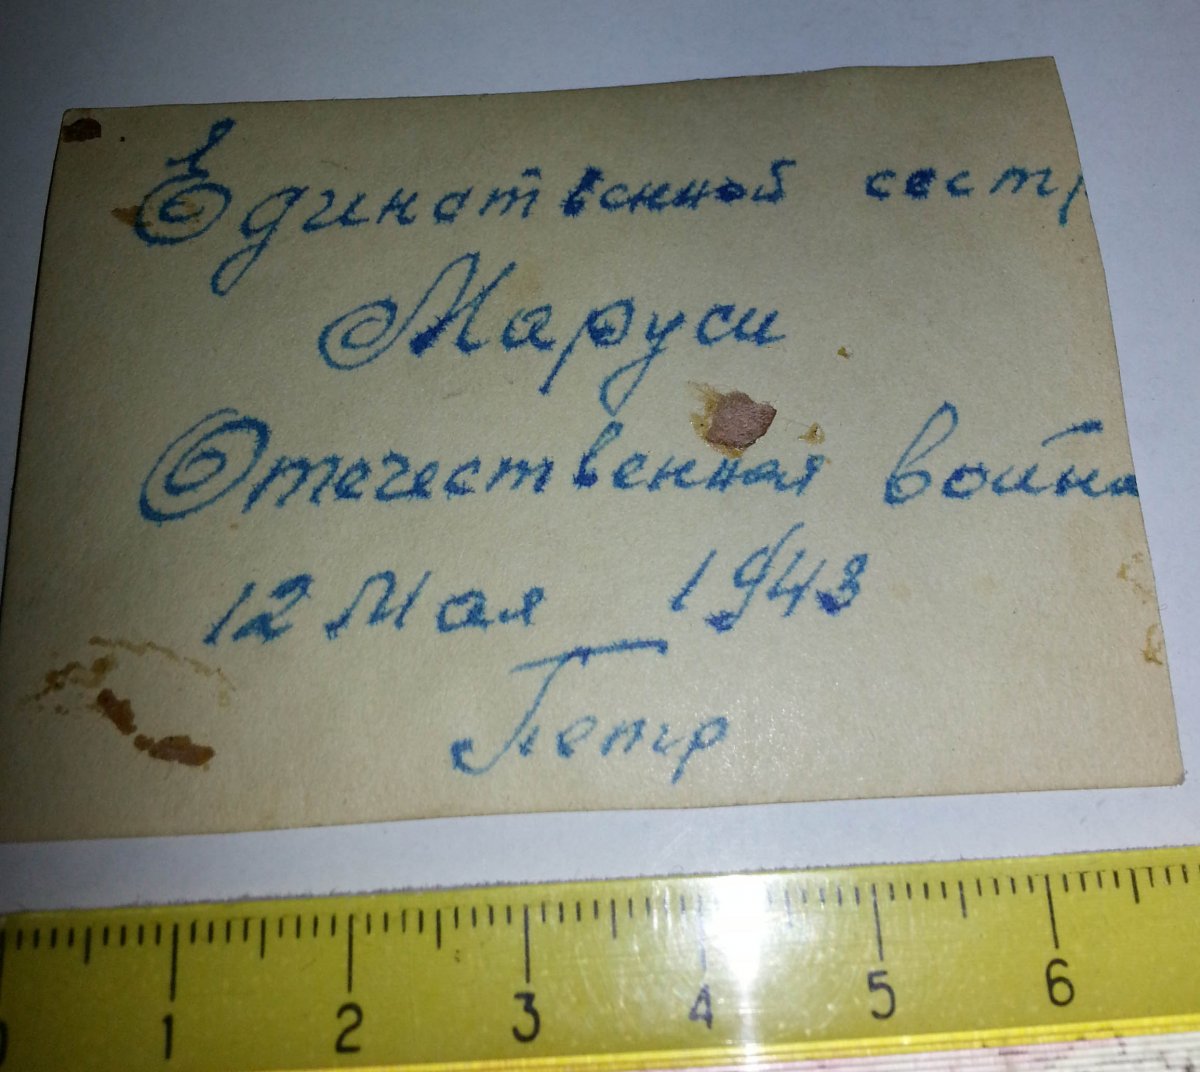 Единственной сестр
Маруси
Отечественная война
12 Мая 1943
Петр
0 1 2 3 4 5 6